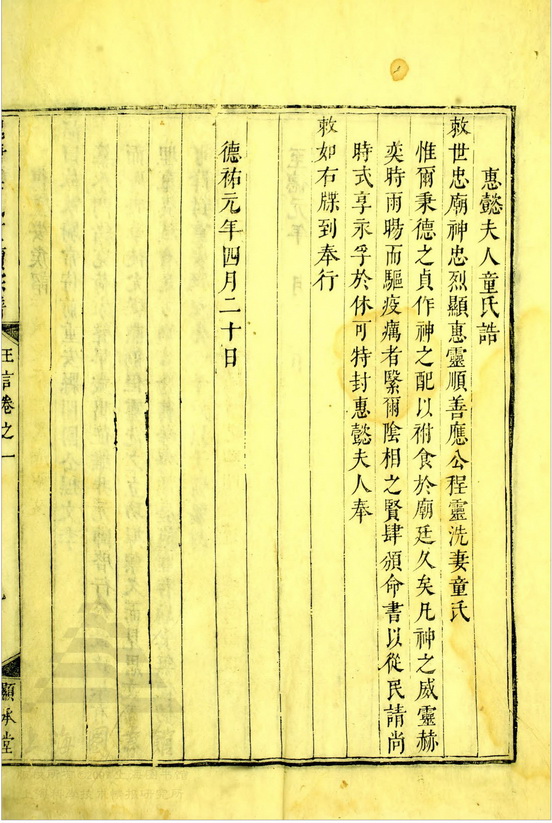 惠懿夫人童氏誥
敕世忠廟神忠烈顯惠靈順善應公程靈洗妻童氏
惟爾秉德之貞作神之配以祔食於廟廷久矣凡神之威靈赫
奕時雨暘而驅疫癘者繄爾陰相之賢肆頒命書以從民請尚
時式享永孚於休可特封惠懿夫人奉
敕如右牒到奉行
德祐元年四月二十日
王言卷之一
顯承堂